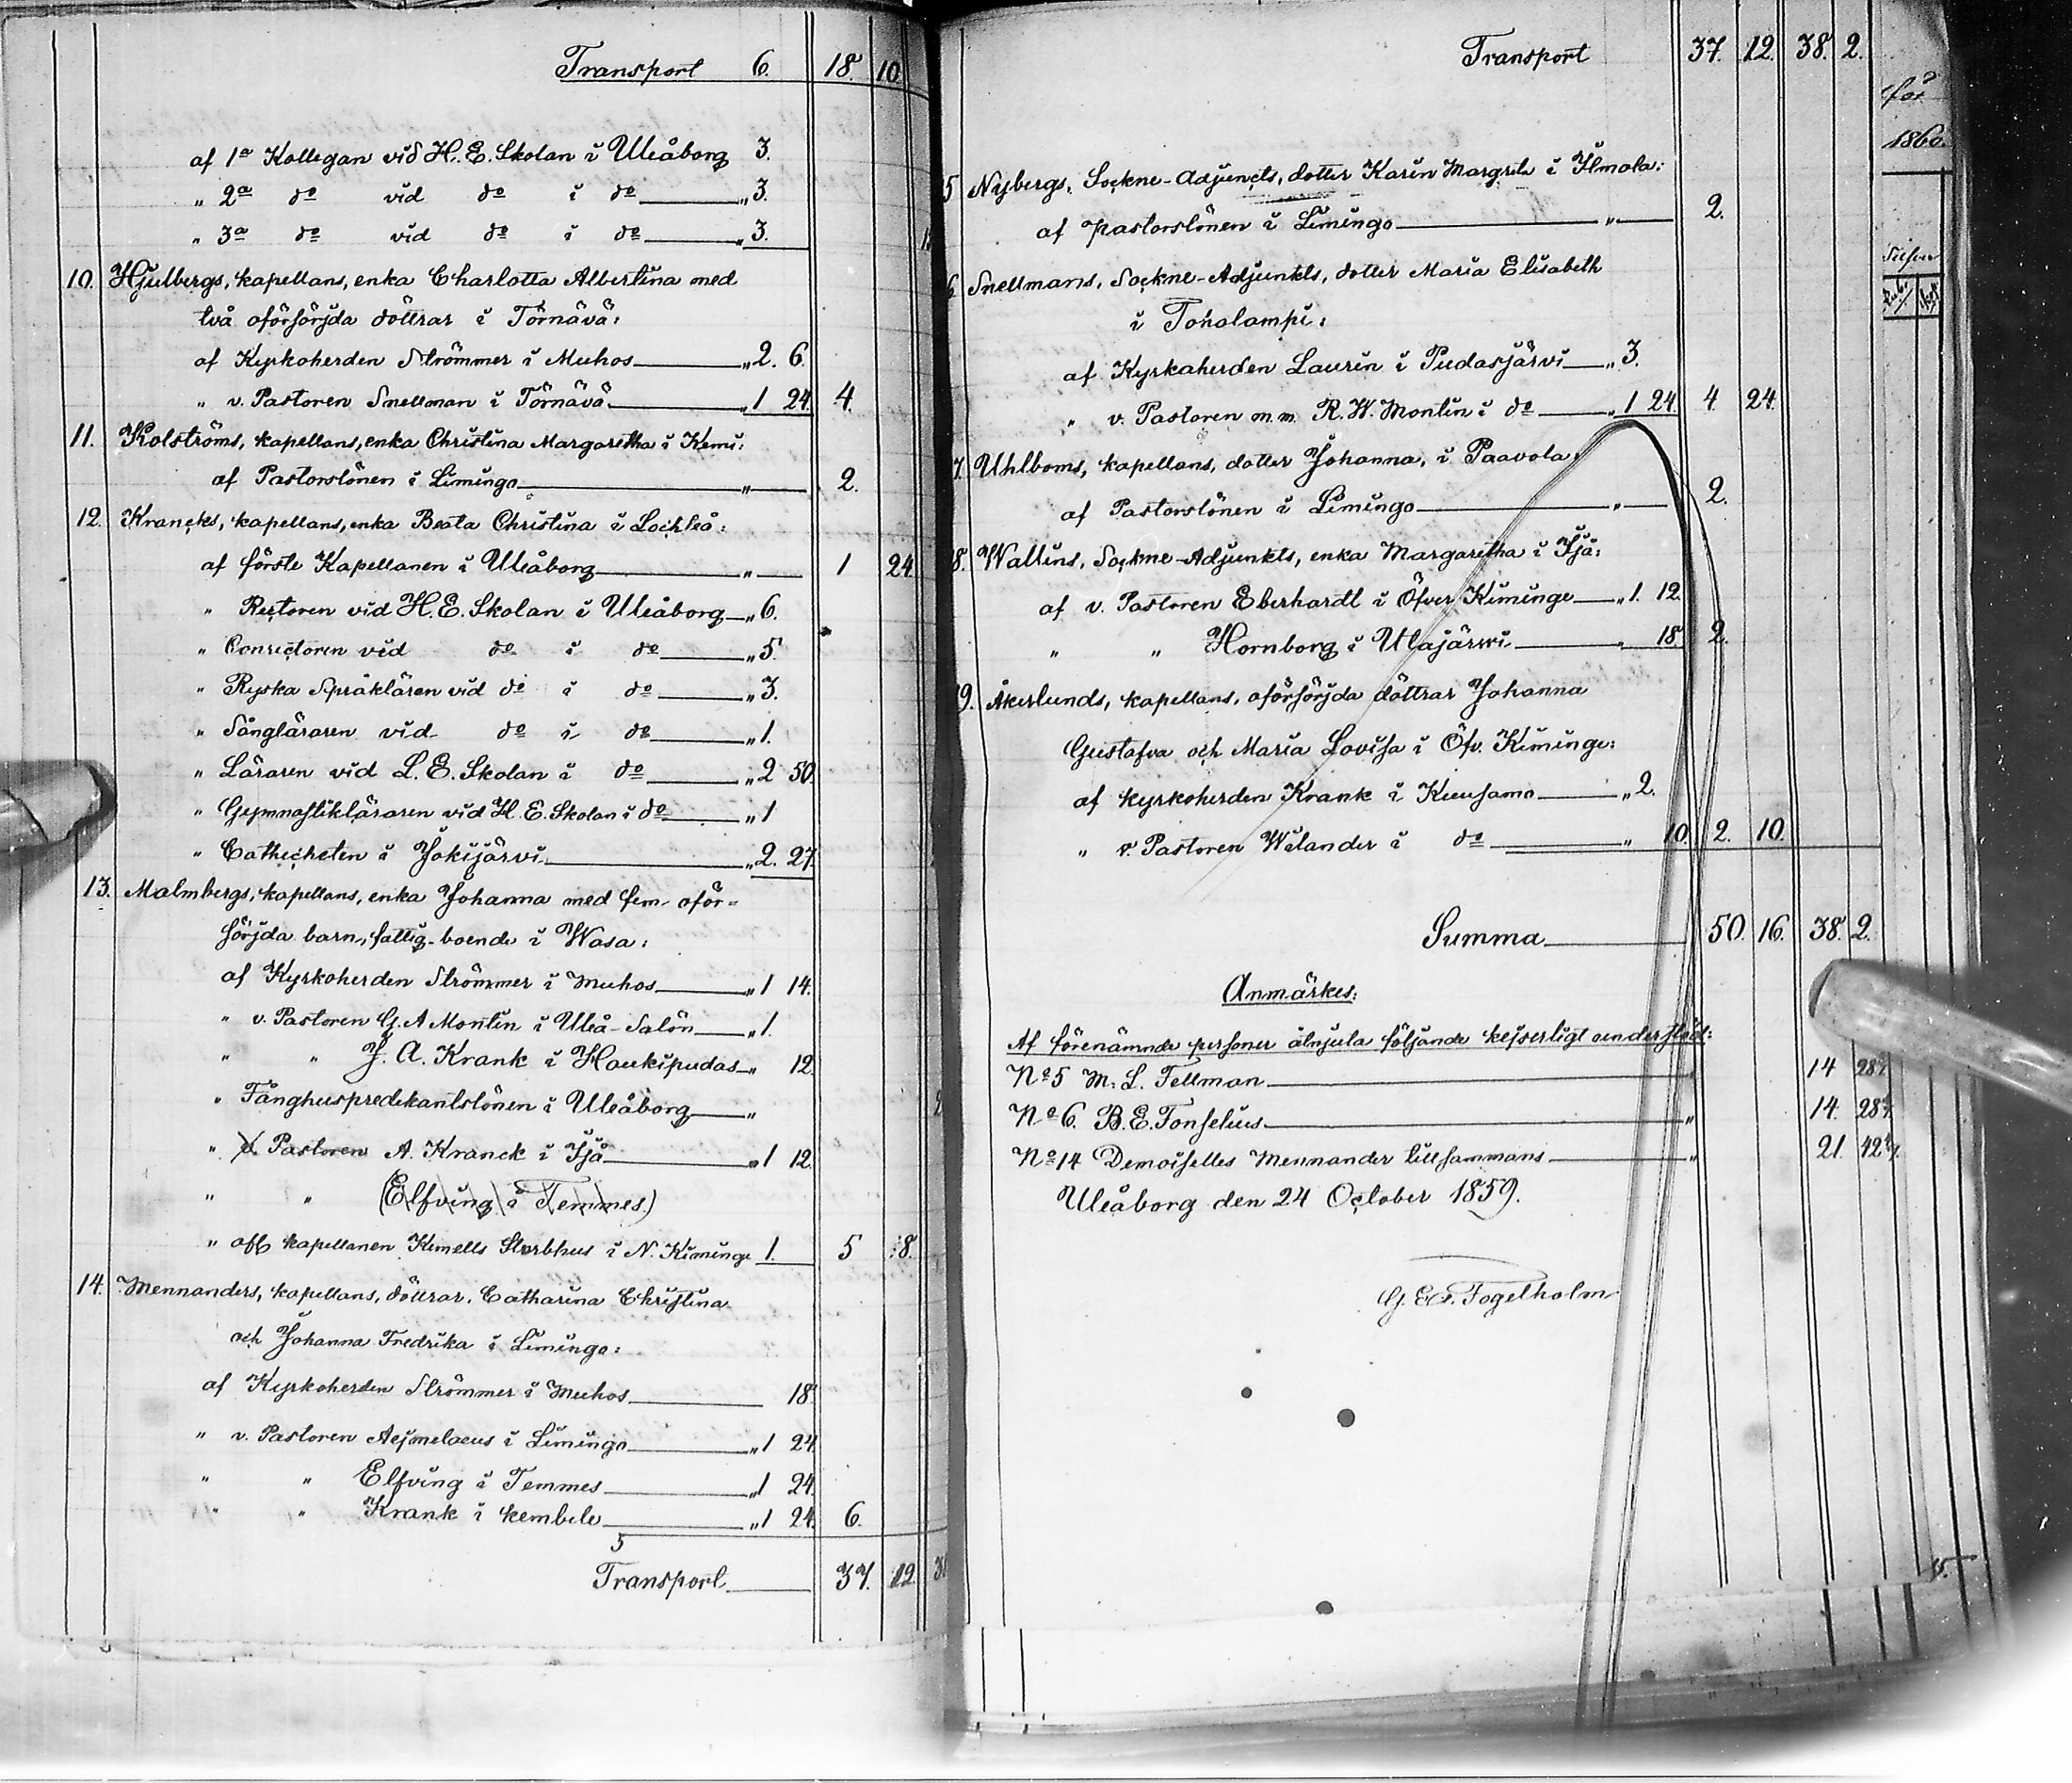 Transport 6. 18. 10
af 1a Kollegan vid H. E. Skolan i Uleåborg 3.
" 2a do vid do i do " 3.
" 3a do vid do i do " 3.
10. Hjulbergs, kapellans, enka Charlotta Albertina med
två oförsörjda döttrar i Törnävä:
af Kyrkoherden Strömmer i Muhos " 2. 6.
" v. Pastoren Snellman i Törnävä " 1 24. 4.
11. Kolströms, kapellans, enka Christina Margaretha i Kemi:
af Pastorslönen i Limingo " 2.
12. Krancks, kapellans, enka Beata Christina i Lochteå:
af förste Kapellanen i Uleåborg " 1 24.
" Rectoren vid H. E. Skolan i Uleåborg " 6.
" Conrectoren vid do i do " 5.
" Ryska Språkläraren vid do i do " 3.
" Sångläraren vid do i do " 1.
" Läraren vid L. E. Skolan i do " 2 50.
" Gymnastikläraren vid H. E. Skolan i do " 1
" Cathecheten i Jokijärvi " 2. 27.
13. Malmbergs, kapellans, enka Johanna med fem oför-
sörjda barn, fattig, boende i Wasa:
af Kyrkoherden Strömmer i Muhos " 1 14.
" v. Pastoren G. A Montin i Uleå-Salön " 1.
" " J. A. Krank i Haukipudas " 12.
" Fånghuspredikantslönen i Uleåborg "
" v. Pastoren A. Kranck i Ijå " 1 12.
" " (Elfving i Temmes)
" afl. kapellanen Kemells Sterbhus i N. Kiminge 1. 5 8.
14. Mennanders, kapellans, döttrar, Catharina Christina
och Johanna Fredrika i Limingo:
af Kyrkoherden Strömmer i Muhos 18.
" v. Pastoren Aejmelaeus i Limingo " 1 24.
" " Elfving i Temmes " 1 24.
" " Krank i kembele " 1 24. 6.
5
Transport 37. 12.
Transport 37. 12. 38. 2.
5 Nybergs, Sockne-Adjuncts, dotter Karin Margreta i Ilmola:
af pastorslönen i Limingo " 2.
6. Snellmans, Sockne-Adjunkts, dotter Maria Elisabeth
i Toholampi:
af Kyrkoherden Laurin i Pudasjärvi " 3.
" v. Pastoren m.m. R. W. Montin i do " 1 24. 4. 24.
7. Uhlboms, kapellans, dotter Johanna, i Paavola
af Pastorslönen i Limingo " 2.
8. Wallins, Sockne-Adjunkts, enka Margaretha i Ijå:
af v. Pastoren Eberhardt i Öfver Kiminge " 1. 12.
" " Hornborg i Utajärwi " 18. 2.
9. Åkerlunds, kapellans, oförsörjda döttrar Johanna
Gustafva och Maria Lovisa i Öfv. Kiminge:
af kyrkoherden Krank i Kuusamo " 2.
" v. Pastoren Wilander i do " 10. 2. 10.
Summa 50. 16. 38. 2.
Anmärkes:
Af förenämnde personer åtnjuta följande kejserligt understöd:
No 5 M. L. Fellman " 14 28
No 6. B. E. Fonselius " 14. 28
No 14 Demoiselles Mennander tillsammans " 21. 42
Uleåborg den 24 October 1859.
Fogelholm
för
1860.